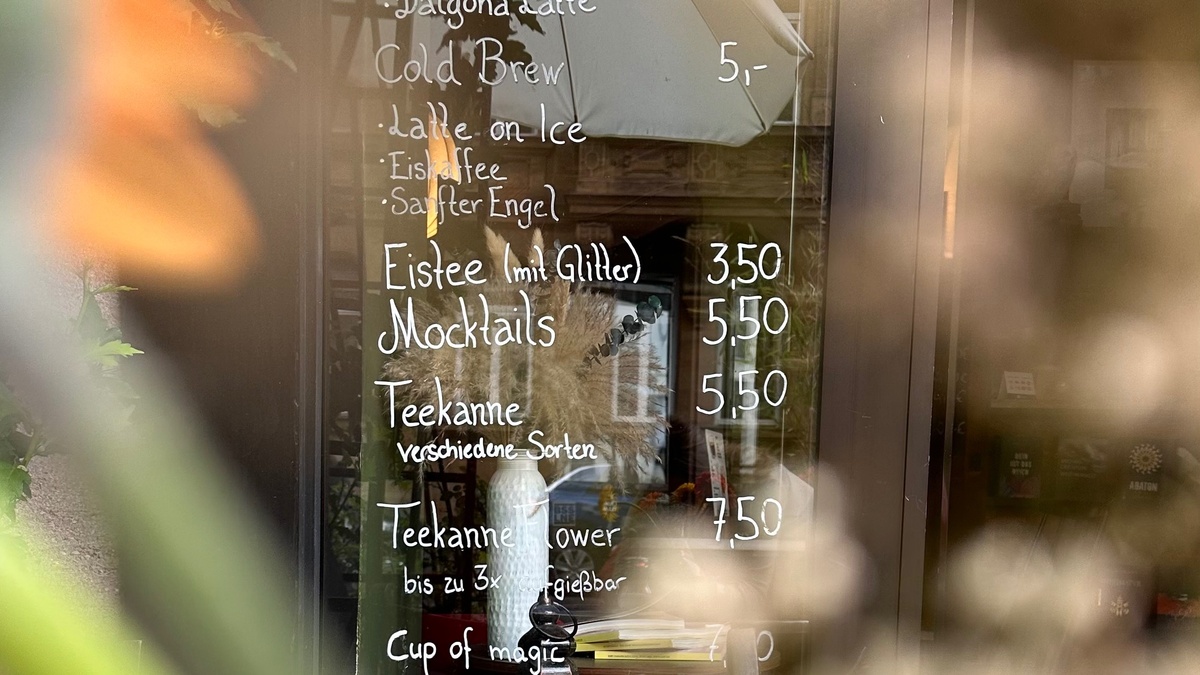 · Dalgona Latte
Cold Brew 5,-
· Latte on Ice
· Eiskaffee
· Sanfter Engel
Eistee (mit Glitter) 3,50
Mocktails 5,50
Teekanne 5,50
verschiedene Sorten
Teekanne Flower 7,50
bis zu 3x aufgießbar
Cup of magic
ABATON